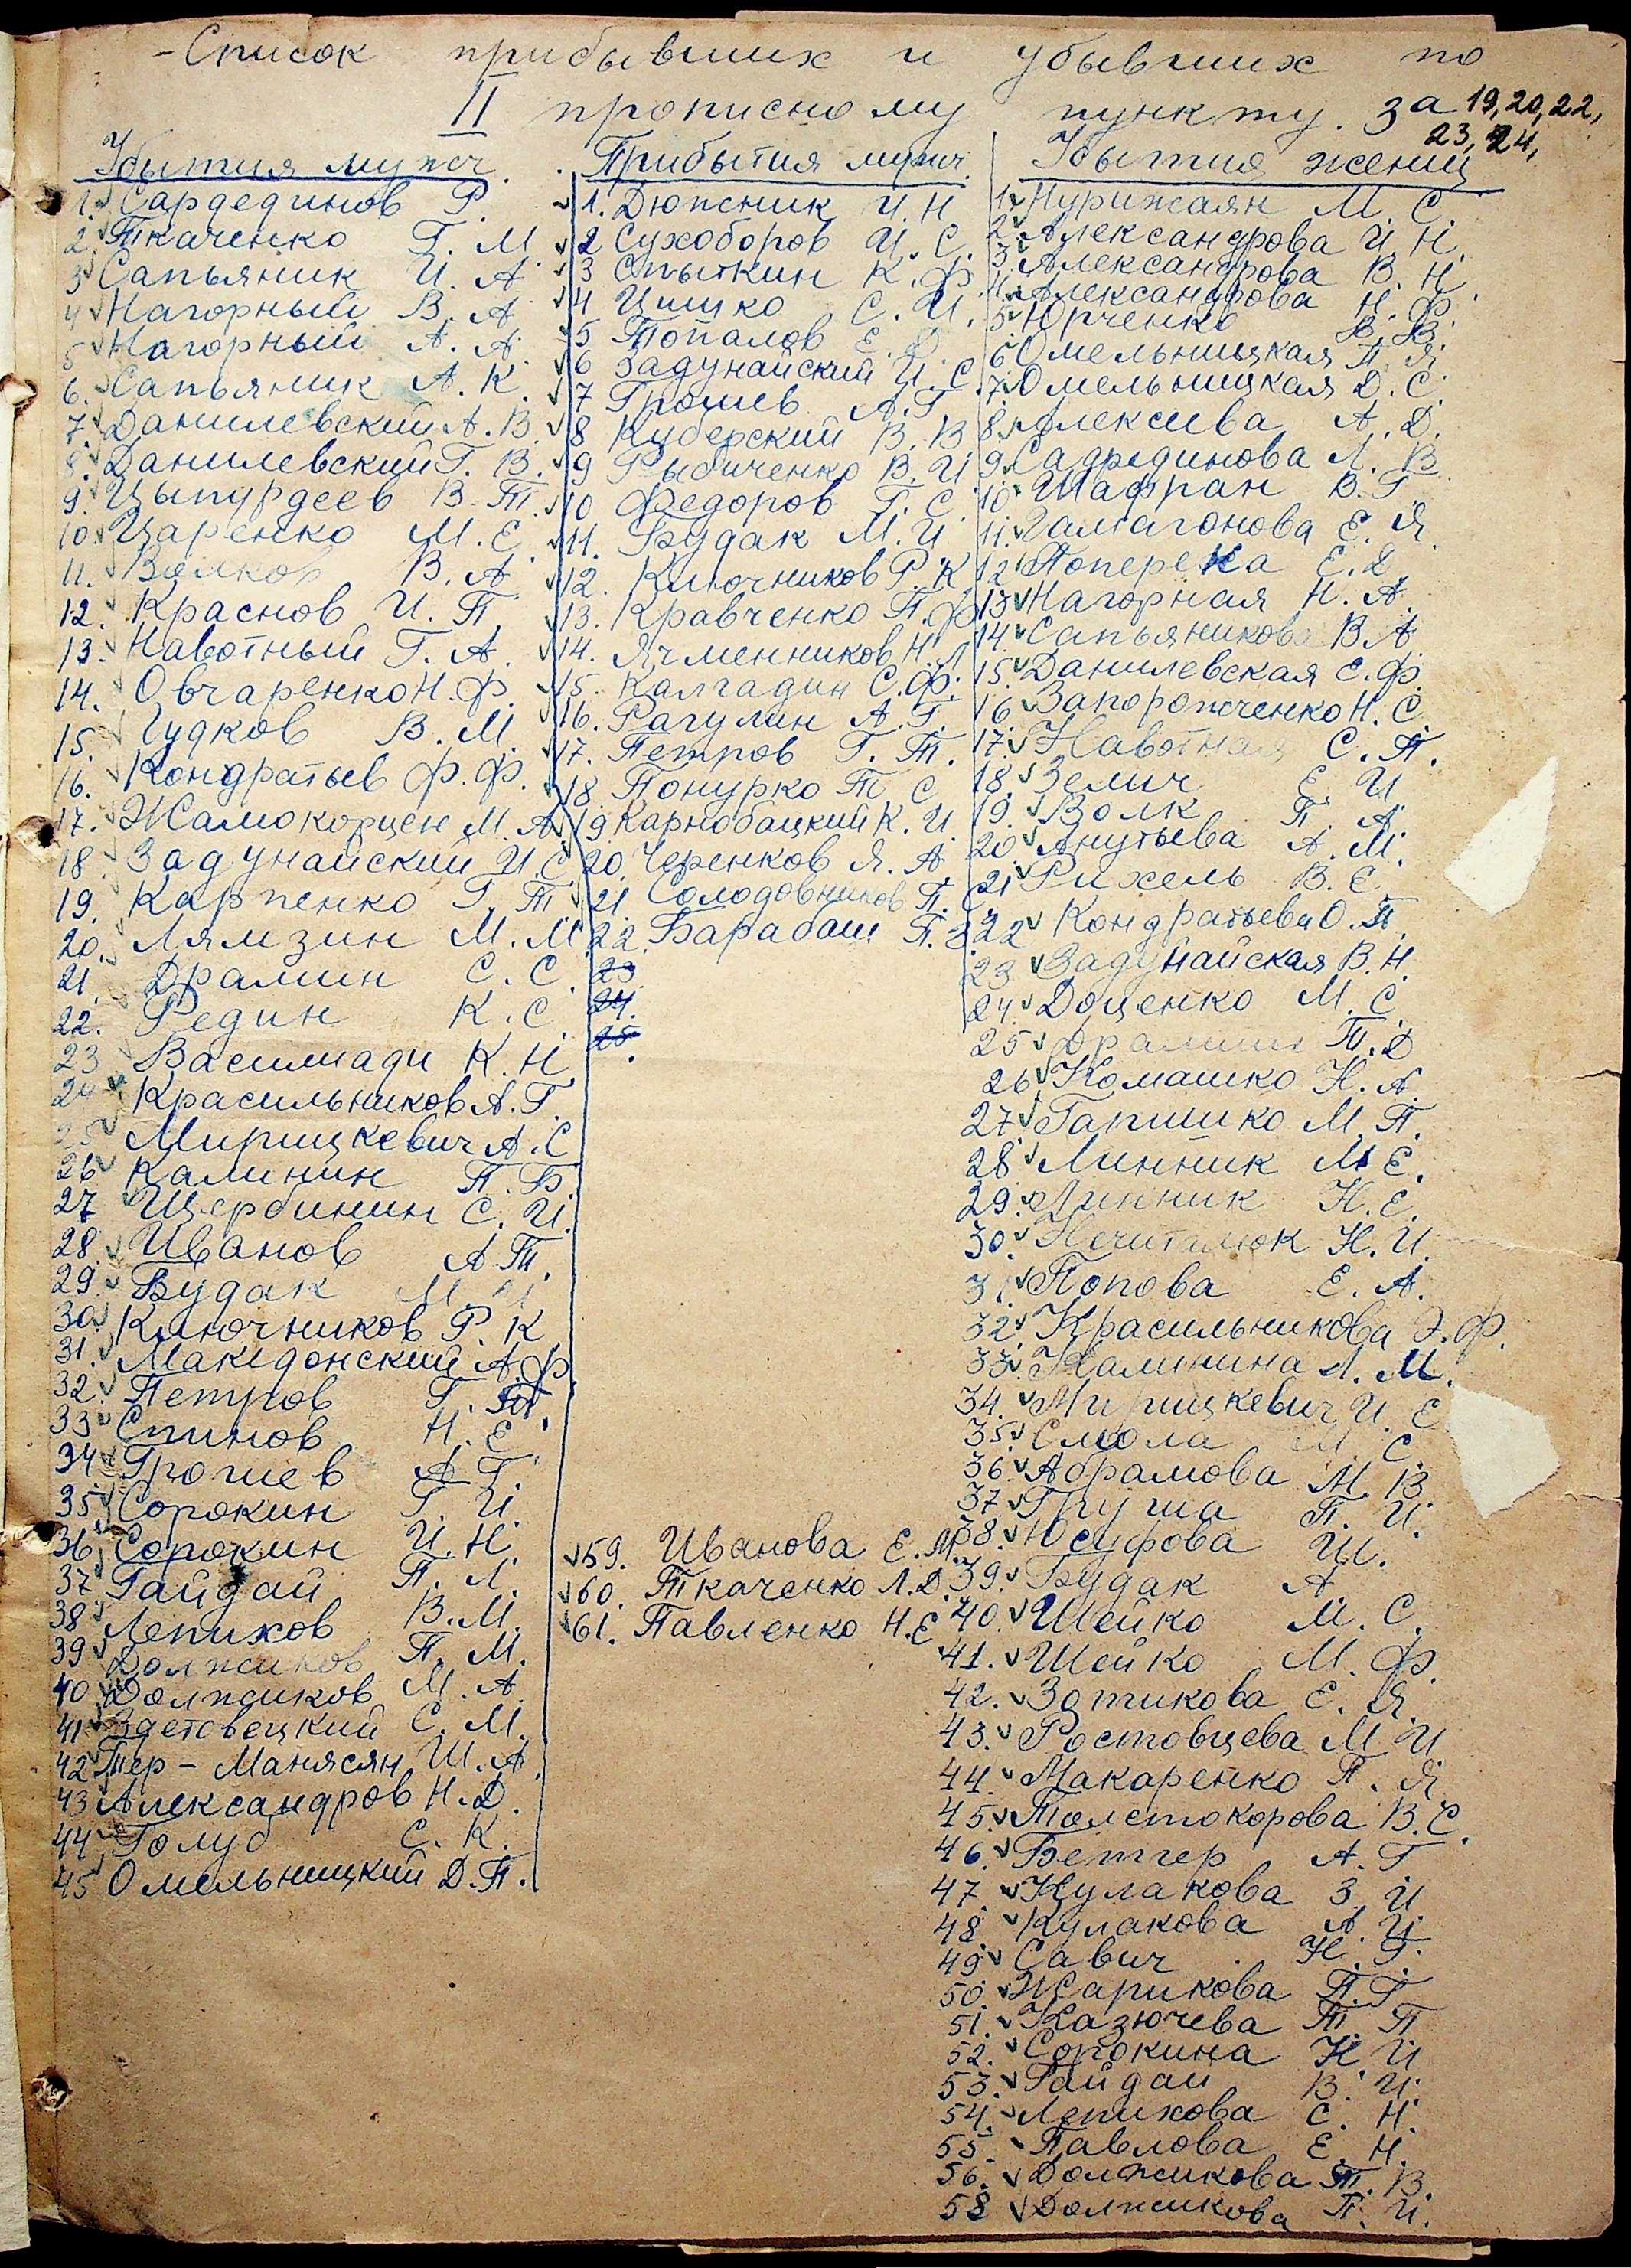 - Список прибывших и убывших по
II прописному пункту. За 19, 20, 22,
23, 24,
Убытия мужч.
1. Сардединов Р.
2. Ткаченко Г. М
3 Сапьяник И. А
4 Нагорный В. А
5 Нагорный А. А.
6. Сапьяник А. К.
7. Данилевский А. В.
8. Данилевский Г. В.
9. Цыпурдеев В. Т.
10. Царенко М. Е
11. Волков В. А
12. Краснов И. П.
13. Навотный Г. А.
14. Овчаренко Н. Ф.
15. Гудков В. М
16. Кондратьев Ф. Ф.
17. Жамокорцен М. А
18. Задунайский И. С
19. Карпенко Г. Т
20. Лямзин М. М
21. Драмин С. С.
22. Редин К. С
23 Василиади К. Н
24 Красильников А. Г.
25 Мирицкевич А. С
26 Калинин П. Б.
27 Щербинин С. И.
28 Иванов А. Т.
29. Будак М. И
30. Ключников Р. К
31. Македонский А. Ф
32. Петров Г. Т
33 Спинов Н. Е.
34 Грошев А. Г.
35 Сорокин Г. И.
36 Сорокин И. Н.
37 Гайдай П. Л.
38 Лепихов В. М.
39 Должиков П. М.
40 Должиков М. А
41 Здетовецкий С. М.
42 Тер - Манясян Ш. А.
43 Александров Н. Д.
44 Голуб С. К.
45 Омельницкий Д. П.
Прибытия мужч.
1. Дюжник И. Н
2 Сухоборов И. С.
3 Спыткин К. Ф
4 Цишко С. И.
5 Топалов Е. Д
6 Задунайский И. С.
7 Грошев А. Г
8 Куберский В. В
9 Рыбиченко В. И
10 Федоров Г. С
11. Будак М. И
12. Ключников Р. К
13. Кравченко П. Ф
14. Ячменников Н. Л
15. Калгадин С. Ф.
16. Рагулин А. Г.
17. Петров Г. Т.
18 Понурко Т С
19 Карнобацкий К. И.
20. Черенков Я. А.
21 Солодовников П. С.
22. Барабаш П. З
23.
24.
25.
59. Иванова Е. М.
60. Ткаченко Л. Д.
61. Павленко Н. Е
Убытия женщ
1 Нурижаян М. С.
2 Александрова И. Н.
3 Александрова В. Н
4 Александрова Н. Ф.
5 Юрченко В. В.
6 Омельницкая П. Я
7. Омельницкая Д. С.
8 Алексева А. Д.
9 Садрединова Л. В
10 Шафран В. Г.
11. Галагонова Е. Я.
12 Поперека Е. Д
13 Нагорная Н. А.
14. Сапьяникова В А
15. Данилевская Е. Ф.
16 Запорожченко Н. С.
17. Навотная С. П.
18. Зелич Е. И
19. Волк П. А.
20 Анутьева А. М.
21 Рихель В. Е.
22 Кондратьева О. П.
23 Задунайская В. Н.
24. Доценко М. С
25 Драмин Т. Д
26 Комашко Н. А.
27 Гапшико М. П.
28 Линник М Е.
29. Линник Н. Е.
30. Нечиталюк Н. И.
31 Попова Е. А.
32 Красильникова Э. Ф.
33. Калинина Л. М.
34. Мирицкевич И. Е
35. Смола М С.
36. Абрамова М. В
37 Груша П. И.
38. Юсуфова Ш.
39. Будак А
40. Шейко М. С.
41. Шейко М. Ф.
42. Зотикова Е. Я.
43. Ростовцева М И
44. Макаренко П. Я.
45. Толстокорова В. С.
46. Бетгер А. Г
47. Кулакова З. И
48 Кулакова А. И.
49 Савич Н. Г.
50. Жарикова П. Г
51. Казючева Т. П
52. Сорокина Н И
53. Гайдай В. И.
54. Лепихова С. Н.
55. Павлова Е. Н.
56. Должикова Т. В.
58 Должикова П. И.